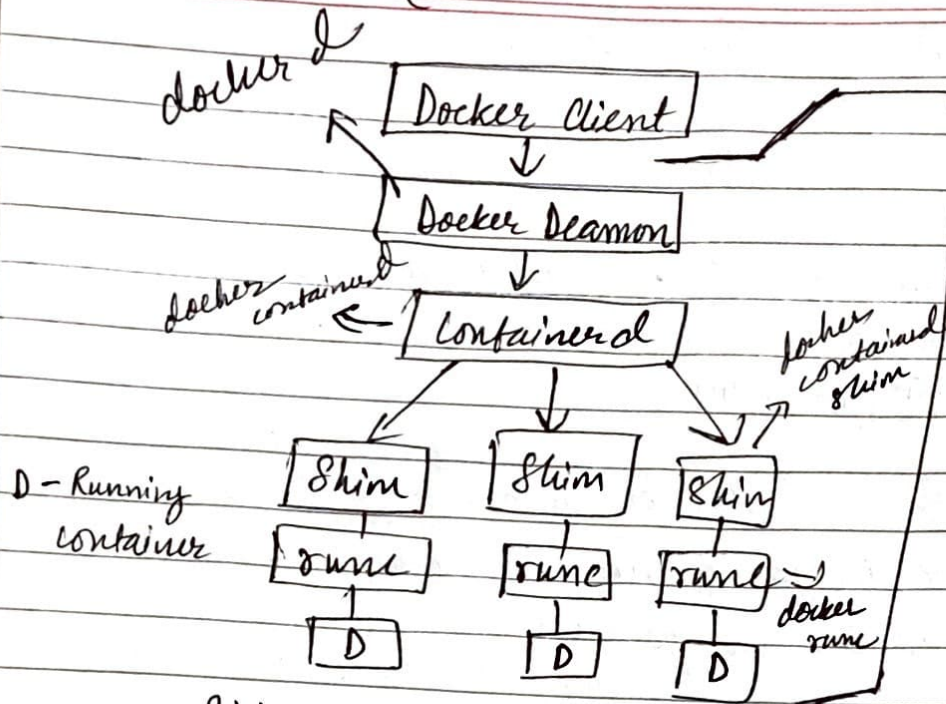 docker d
Docker Client
Docker Deamon
docker
containerd
Containerd
docker
containerd
shim
Shim
Shim
Shim
D - Running
container
runc
runc
runc
docker
runc
D
D
D